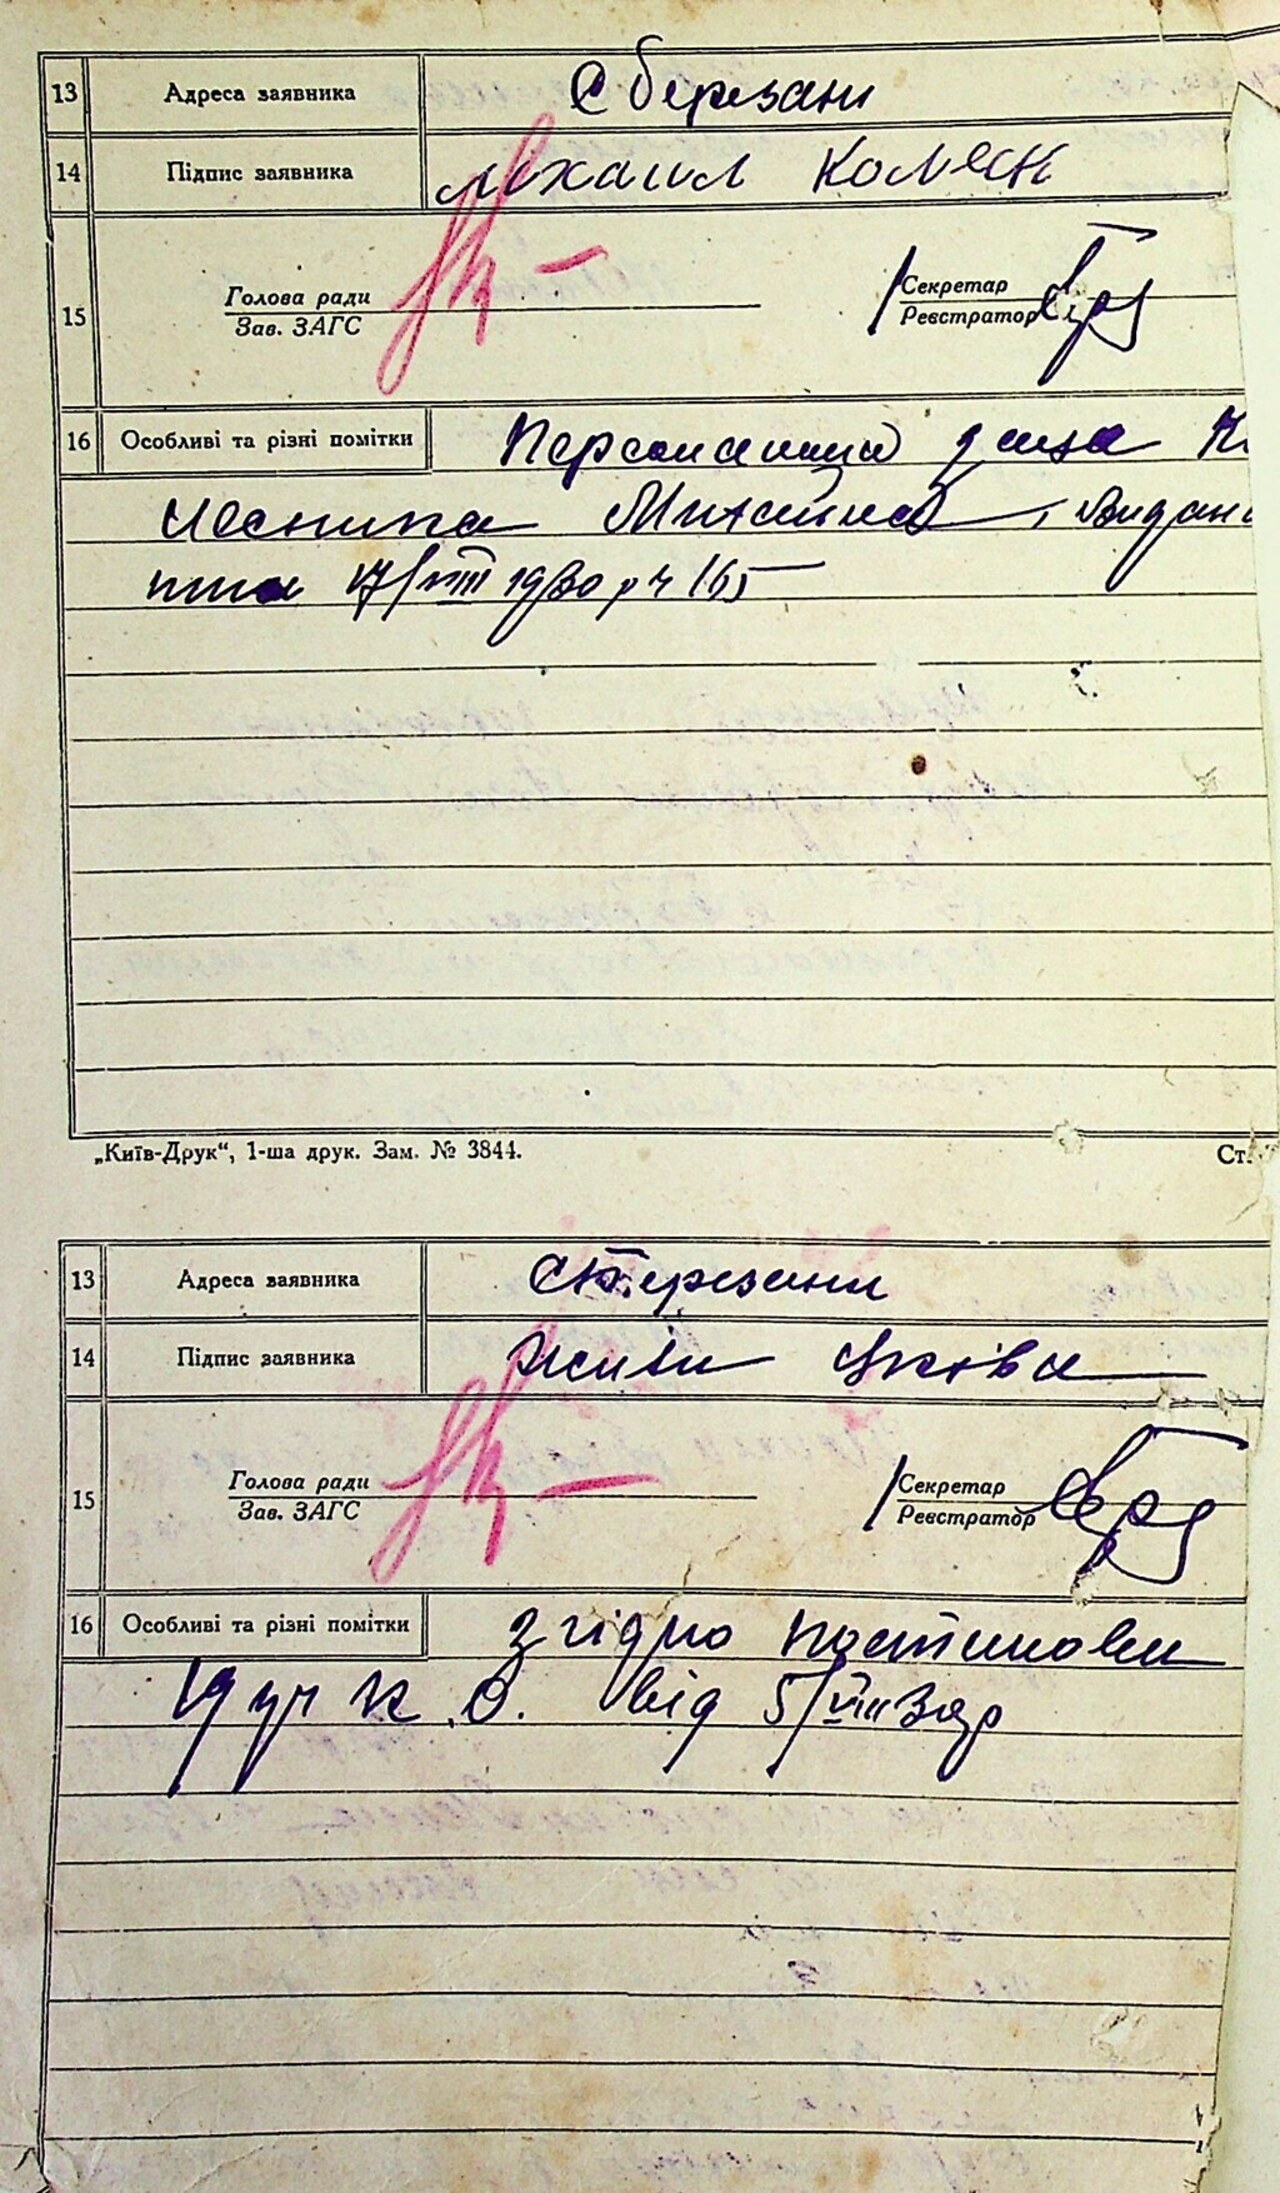 13 Адреса заявника С Березани
14 Підпис заявника михаил Колесн
15 Голова ради Секретар
Зав. ЗАГС Реєстратор
16 Особливі та різні помітки Персональна
лесника Михайла, видан
17/VIII 1930 р ч 165
„Київ-Друк“, 1-ша друк. Зам. № 3844. Ст.
13 Адреса заявника С Березани
14 Підпис заявника
15 Голова ради Секретар
Зав. ЗАГС Реєстратор
16 Особливі та різні помітки Згідно постанови
від 5/VIII 30р